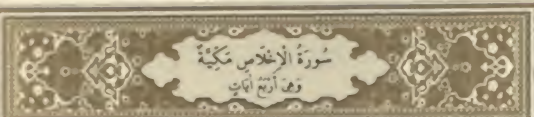 سُورَةُ الْاِخْلَاصِ مَكِّيَّةٌ
وَهِىَ اَرْبَعُ اٰيَاتٍ